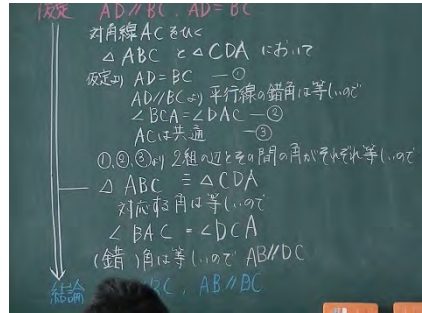 仮定 AD//BC, AD=BC
対角線ACをひく
△ABCと△CDAにおいて
仮定より AD=BC ―①
AD//BCより平行線の錯角は等しいので
∠BCA=∠DAC ―②
ACは共通 ―③
①,②,③より 2組の辺とその間の角がそれぞれ等しいので
△ABC≡△CDA
対応する角は等しいので
∠BAC=∠DCA
(錯)角は等しいので AB//DC
結論 BC, AB//DC